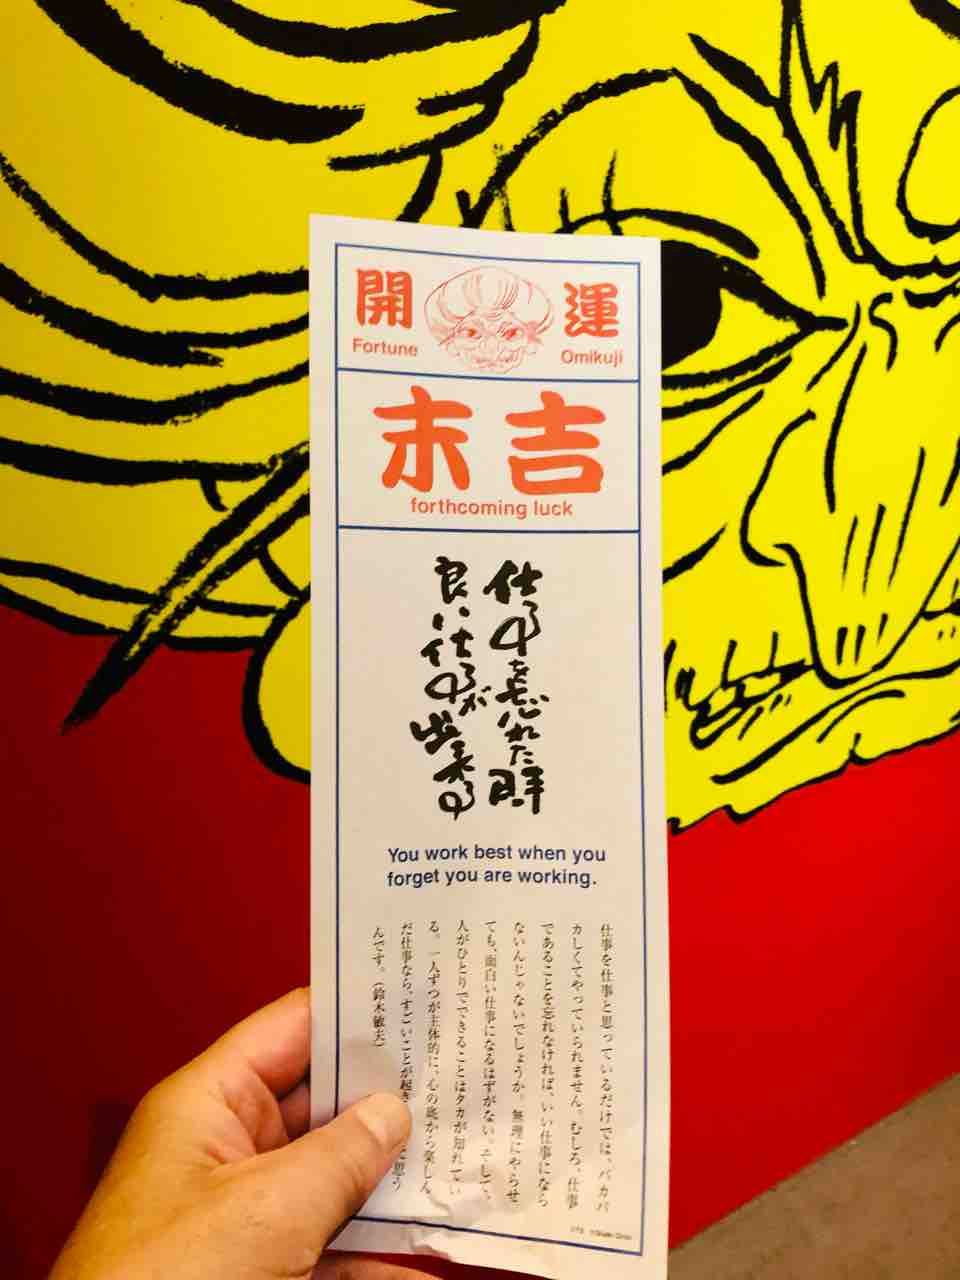 開運
Fortune
Omikuji
末吉
forthcoming luck
仕事を忘れた時
良い仕事が出来る
You work best when you
forget you are working.
仕事を仕事と思っているだけでは、バカバ
カしくてやっていられません。むしろ、仕事
であることを忘れなければ、いい仕事になら
ないんじゃないでしょうか。無理にやらせ
ても、面白い仕事になるはずがない。そして、
人がひとりでできることはタカが知れてい
る。一人ずつが主体的に、心の底から楽しん
だ仕事なら、すごいことが起き
思う
んです。(鈴木敏夫)